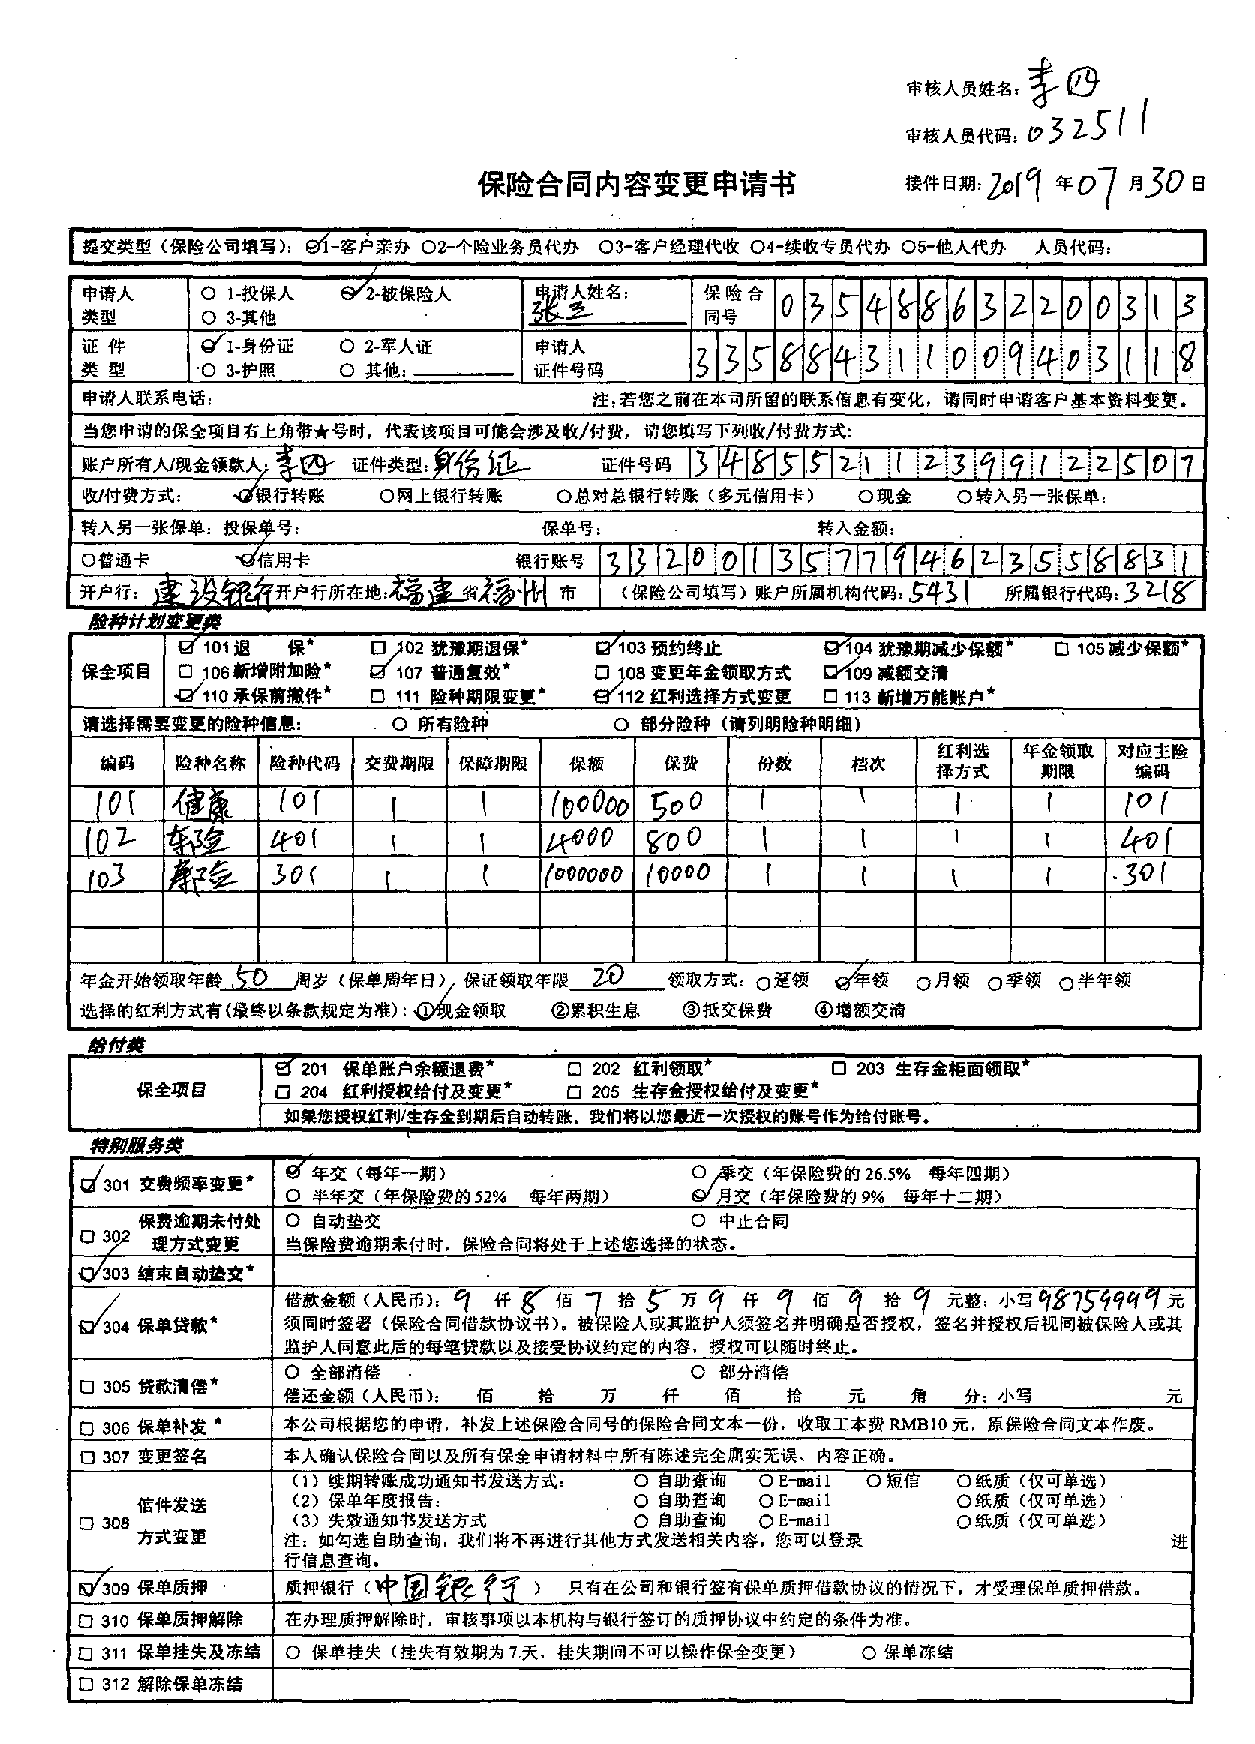 审核人员姓名：李四
审核人员代码：032511
保险合同内容变更申请书
接件日期：2019年07月30日
提交类型（保险公司填写）：☑1-客户亲办 ○2-个险业务员代办 ○3-客户经理代收 ○4-续收专员代办 ○5-他人代办 人员代码：
申请人类型 ○ 1-投保人 ☑ 2-被保险人 ○ 3-其他 申请人姓名：张三 保险合同号 035488632200313
证件类型 ☑ 1-身份证 ○ 2-军人证 ○ 3-护照 ○ 其他： 申请人证件号码 335884311009403118
申请人联系电话： 注：若您之前在本司所留的联系信息有变化，请同时申请客户基本资料变更。
当您申请的保全项目右上角带★号时，代表该项目可能会涉及收/付费，请您填写下列收/付费方式：
账户所有人/现金领款人：李四 证件类型：身份证 证件号码 348552112399122507
收/付费方式： ☑银行转账 ○网上银行转账 ○总对总银行转账（多元信用卡） ○现金 ○转入另一张保单：
转入另一张保单：投保单号： 保单号： 转入金额：
○普通卡 ☑信用卡 银行账号 332001357794623558831
开户行：建设银行 开户行所在地：福建省福州市 （保险公司填写）账户所属机构代码：5431 所属银行代码：3218
险种计划变更类
保全项目
☑ 101退 保* ☐ 102 犹豫期退保* ☑ 103 预约终止 ☑ 104 犹豫期减少保额* ☐ 105减少保额*
☐ 106新增附加险* ☑ 107 普通复效* ☐ 108 变更年金领取方式 ☑ 109 减额交清
☑ 110 承保前撤件* ☐ 111 险种期限变更* ☑ 112 红利选择方式变更 ☐ 113 新增万能账户*
请选择需要变更的险种信息： ○ 所有险种 ○ 部分险种（请列明险种明细）
编码 险种名称 险种代码 交费期限 保障期限 保额 保费 份数 档次 红利选择方式 年金领取期限 对应主险编码
101 健康 101 1 1 100000 500 1 1 1 1 101
102 车险 401 1 1 4000 800 1 1 1 1 401
103 寿险 301 1 1 1000000 10000 1 1 1 1 301
年金开始领取年龄 50 周岁（保单周年日），保证领取年限 20 领取方式：○趸领 ☑年领 ○月领 ○季领 ○半年领
选择的红利方式有（最终以条款规定为准）：①现金领取 ②累积生息 ③抵交保费 ④增额交清
给付类
保全项目
☑ 201 保单账户余额退费* ☐ 202 红利领取* ☐ 203 生存金柜面领取*
☐ 204 红利授权给付及变更* ☐ 205 生存金授权给付及变更*
如果您授权红利/生存金到期后自动转账，我们将以您最近一次授权的账号作为给付账号。
特别服务类
☑ 301 交费频率变更* ☑ 年交（每年一期） ○ 季交（年保险费的26.5% 每年四期）
○ 半年交（年保险费的52% 每年两期） ☑ 月交（年保险费的9% 每年十二期）
☐ 302 保费逾期未付处理方式变更 ○ 自动垫交 ○ 中止合同
当保险费逾期未付时，保险合同将处于上述您选择的状态。
☑ 303 结束自动垫交*
☑ 304 保单贷款* 借款金额（人民币）：9仟8佰7拾5万9仟9佰9拾9元整；小写98759999元
须同时签署（保险合同借款协议书）。被保险人或其监护人须签名并明确是否授权，签名并授权后视同被保险人或其
监护人同意此后的每笔贷款以及接受协议约定的内容，授权可以随时终止。
☐ 305 贷款清偿* ○ 全部清偿 ○ 部分清偿
偿还金额（人民币）： 佰 拾 万 仟 佰 拾 元 角 分；小写 元
☐ 306 保单补发* 本公司根据您的申请，补发上述保险合同号的保险合同文本一份，收取工本费RMB10元，原保险合同文本作废。
☐ 307 变更签名 本人确认保险合同以及所有保全申请材料中所有陈述完全属实无误、内容正确。
☐ 308 信件发送方式变更
（1）续期转账成功通知书发送方式： ○ 自助查询 ○E-mail ○短信 ○纸质（仅可单选）
（2）保单年度报告： ○ 自助查询 ○E-mail ○纸质（仅可单选）
（3）失效通知书发送方式 ○ 自助查询 ○E-mail ○纸质（仅可单选）
注：如勾选自助查询，我们将不再进行其他方式发送相关内容，您可以登录 进
行信息查询。
☑ 309 保单质押 质押银行（中国银行） 只有在公司和银行签有保单质押借款协议的情况下，才受理保单质押借款。
☐ 310 保单质押解除 在办理质押解除时，审核事项以本机构与银行签订的质押协议中约定的条件为准。
☐ 311 保单挂失及冻结 ○ 保单挂失（挂失有效期为7天，挂失期间不可以操作保全变更） ○ 保单冻结
☐ 312 解除保单冻结